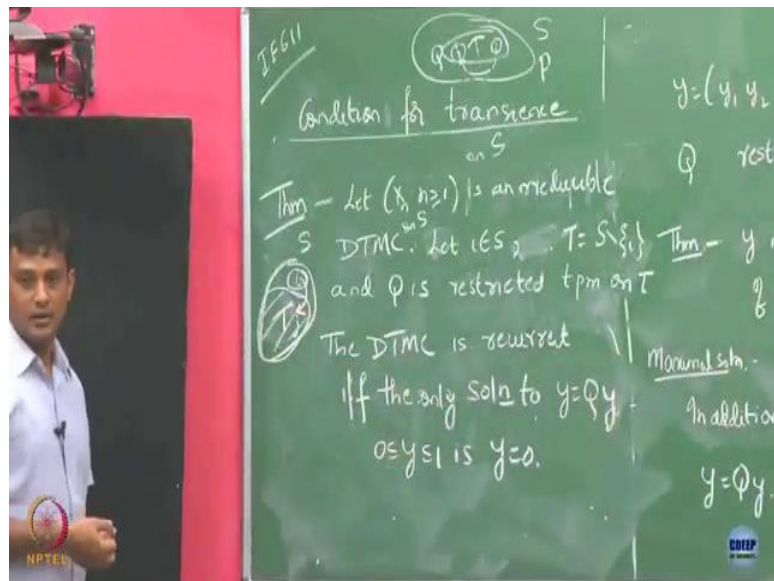 IE611
Q Q T Q S
P
Condition for transience
on S
Thm - Let (X, n≥1) is an irreducible
on S
S DTMC. Let 1∈S, T = S\{1}
and Q is restricted tpm on T
1
T
The DTMC is recurret
iff the only soln to y=Qy
0≤y≤1 is y=0.
y=(y₁ y₂
Q rest
Thm - y
Maximal soln. -
In addition
y=Qy.
NPTEL
CDEEP